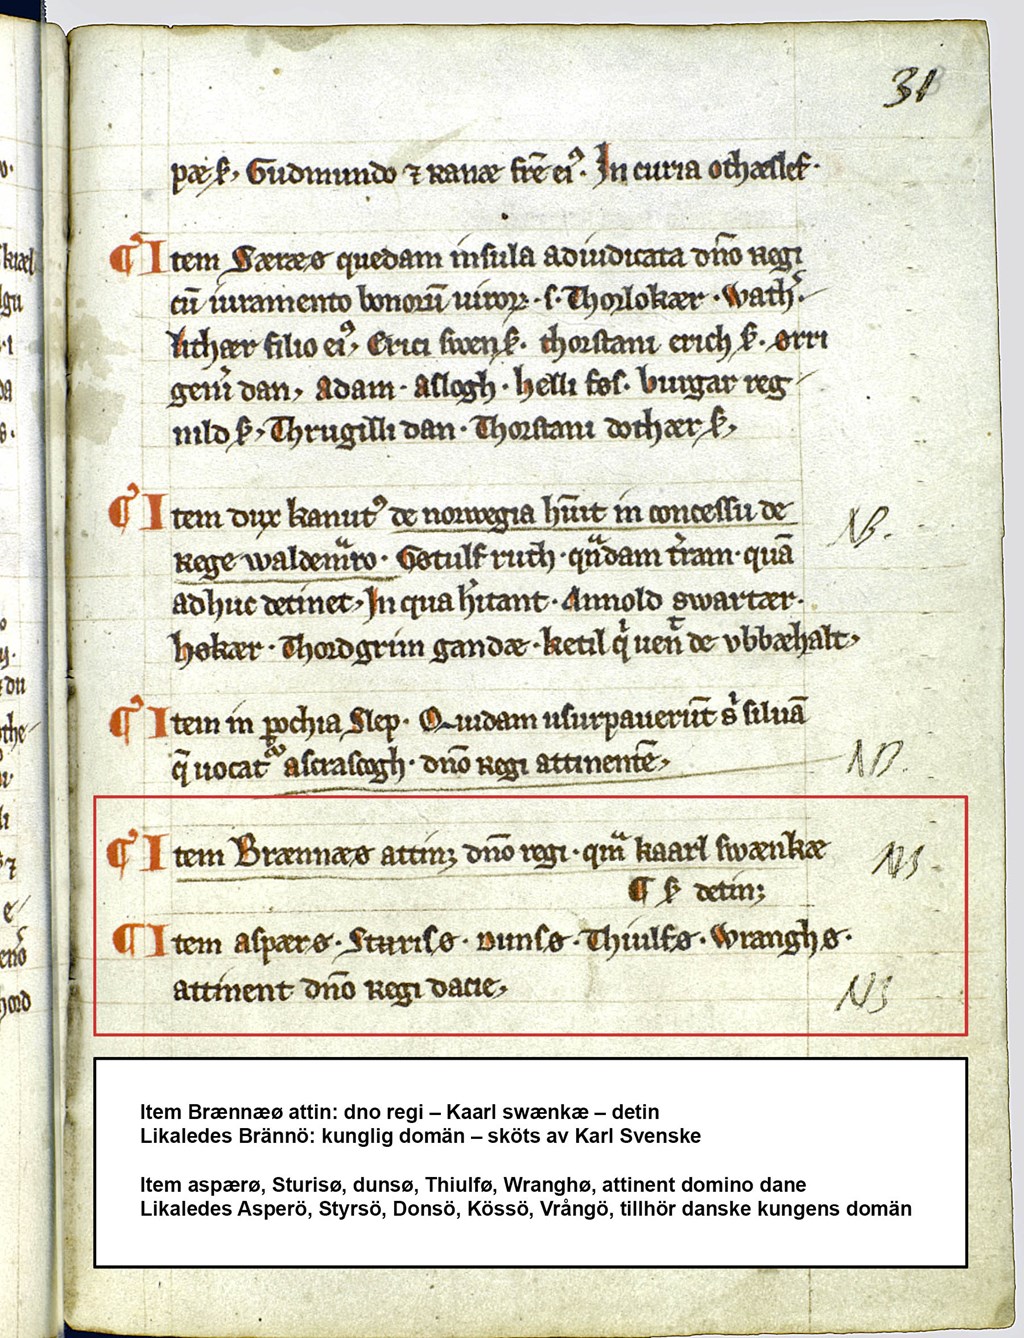 31
pæ ẜ, Gudmundo ⁊ Ranæ frē ei⁹. In curia othæslef.
¶ Item Særæø quedam insula adiudicata dn̄o Regi
cū iuramento bonoꝝ uiroꝝ. s. Thorlokær. wath.
lithær filio ei⁹, Erici swen ẜ. thorstani erich ẜ. ørri
dan, Adam. aslogh. helli fos. burgar reg
nild ẜ, Thrugilli dan. Thorstani dothær ẜ,
¶ Item dux kanut⁹ de norwegia hūit in concessu de
Rege waldemͣro. Gøtulf ruth. qͣndam tr̄am. quā
adhuc detinet, In qua hītant. Arnold swartær.
høkær. Thordgrim gandæ. ketil de vbbæhalt,
NB.
¶ Item in ꝑochia Slep. Quidam usurpauerūt siluā
uocat ascrascogh. dn̄o Regi attinentē,
NB.
¶ Item Brænnæø attinꝫ dn̄o regi. qm̄ kaarl swænkæ
¶ ẜ detinꝫ
NB.
¶ Item aspærø. Sturisø. dunsø. Thiulfø. Wranghø.
attinent dn̄o Regi dacie,
NB
Item Brænnæø attin: dno regi – Kaarl swænkæ – detin
Likaledes Brännö: kunglig domän – sköts av Karl Svenske
Item aspærø, Sturisø, dunsø, Thiulfø, Wranghø, attinent domino dane
Likaledes Asperö, Styrsö, Donsö, Kössö, Vrångö, tillhör danske kungens domän